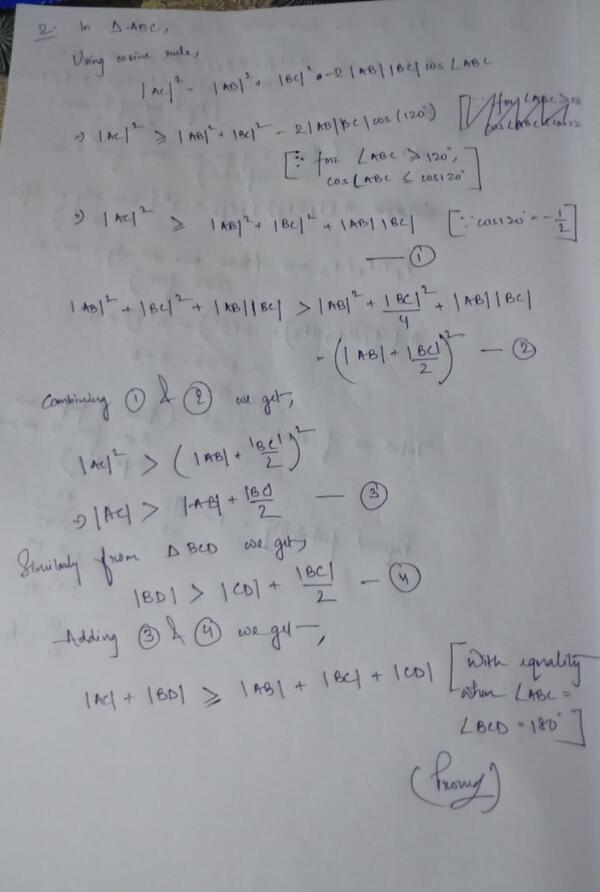 2. In Δ ABC,
Using cosine rule,
|AC|² = |AB|² + |BC|² - 2|AB||BC| cos ∠ABC
⇒ |AC|² ≥ |AB|² + |BC|² - 2|AB||BC| cos(120°)
[∵ for ∠ABC ≥ 120°,
cos∠ABC ≤ cos120°]
⇒ |AC|² ≥ |AB|² + |BC|² + |AB||BC| [∵ cos120° = -1/2]
— ①
|AB|² + |BC|² + |AB||BC| > |AB|² + |BC|²/4 + |AB||BC|
= (|AB| + |BC|/2)² — ②
Combining ① & ② we get,
|AC|² > (|AB| + |BC|/2)²
⇒ |AC| > |AB| + |BC|/2 — ③
Similarly from Δ BCD we get,
|BD| > |CD| + |BC|/2 — ④
Adding ③ & ④ we get,
|AC| + |BD| ≥ |AB| + |BC| + |CD| [With equality
when ∠ABC =
∠BCD = 180°]